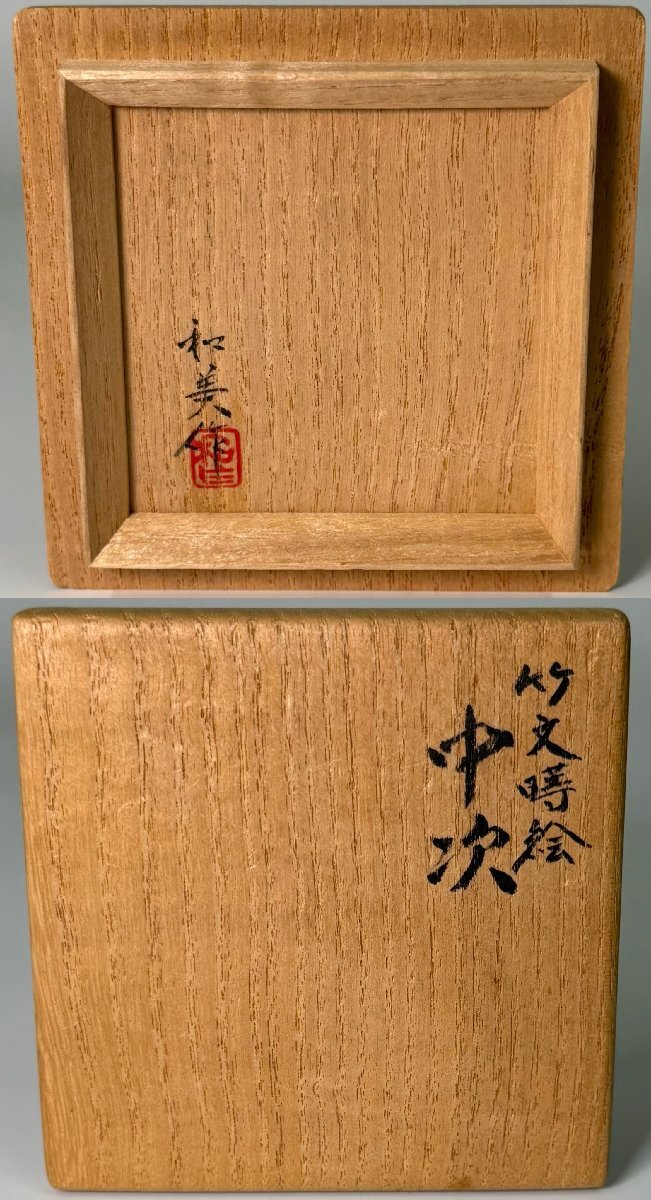 和美作
竹文蒔絵
中次